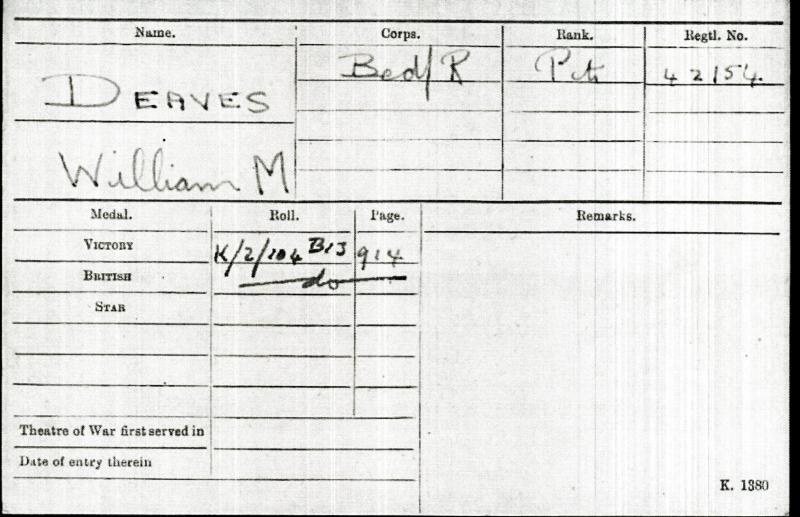 Name. Corps. Rank. Regtl. No.
DEAVES Bed/R Pte 42154
William M
Medal. Roll. Page. Remarks.
VICTORY K/2/104 B13 914
BRITISH do
STAR
Theatre of War first served in
Date of entry therein
K. 1380